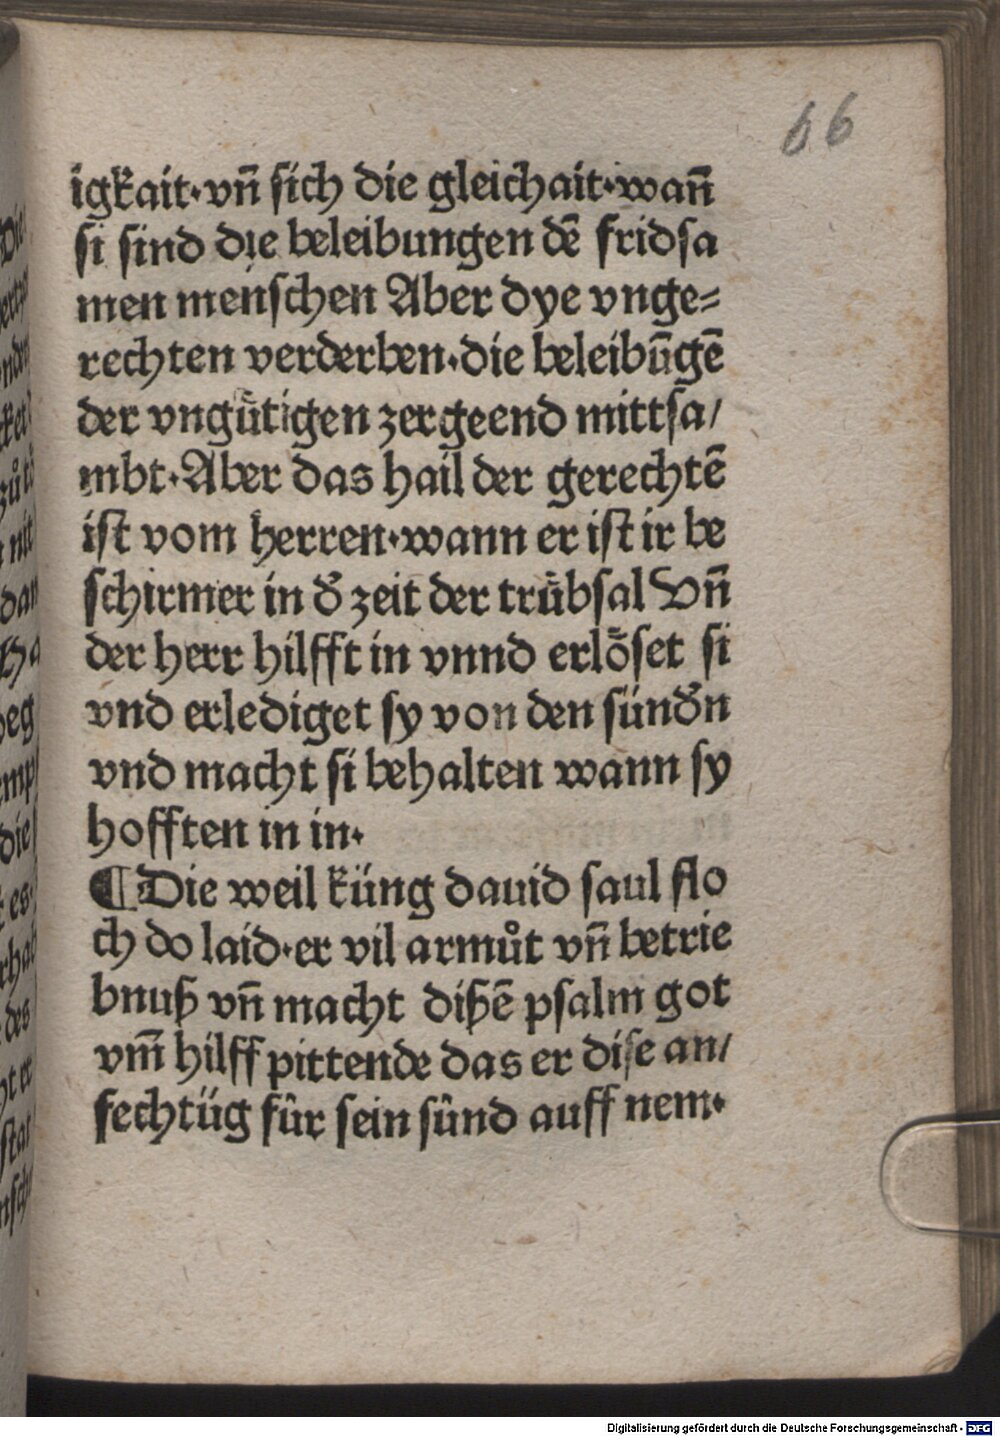 66
igkait·vn̄ sich die gleichait·wan̄
si sind die beleibungen dē fridsa
men menschen Aber dye vnge⸗
rechten verderben·die beleibūgē
der vngütigen zergeend mittsa/
mbt·Aber das hail der gerechtē
ist vom herren·wann er ist ir be
schirmer in d̕ zeit der trübsal Vn̄
der herr hilfft in vnnd erlöset si
vnd erlediget sy von den sünd̕n
vnd macht si behalten wann sy
hofften in in·
¶Die weil küng dauid saul flo
ch do laid·er vil armůt vn̄ betrie
bnuß vn̄ macht dißē psalm got
vm̄ hilff pittende das er dise an/
fechtüg für sein sünd auff nem·
Digitalisierung gefördert durch die Deutsche Forschungsgemeinschaft - DFG